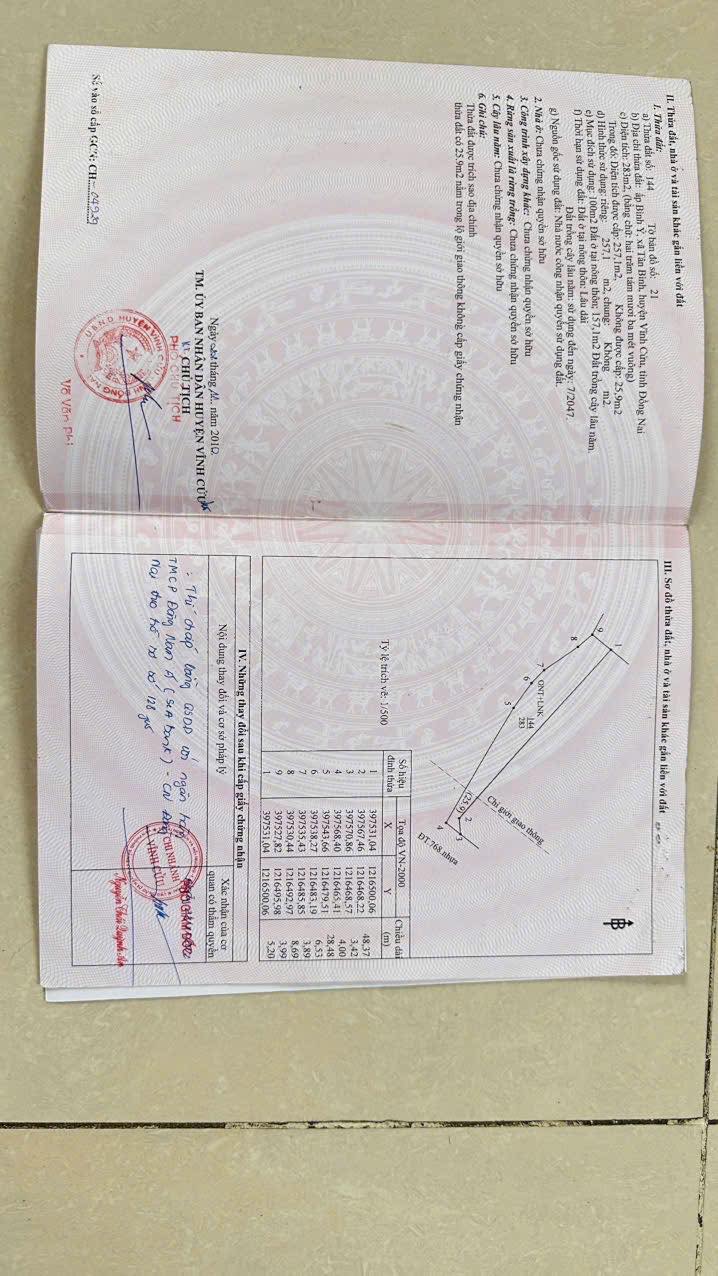 II. Thửa đất, nhà ở và tài sản khác gắn liền với đất
1. Thửa đất:
a) Thửa đất số: 144 Tờ bản đồ số: 21
b) Địa chỉ thửa đất: ấp Bình Ý, xã Tân Bình, huyện Vĩnh Cửu, tỉnh Đồng Nai
c) Diện tích: 283m2, (bằng chữ: hai trăm tám mươi ba mét vuông)
Trong đó: Diện tích được cấp: 257,1m2, Không được cấp: 25,9m2
d) Hình thức sử dụng: riêng: 257,1 m2, chung: Không m2.
e) Mục đích sử dụng: 100m2 Đất ở tại nông thôn; 157,1m2 Đất trồng cây lâu năm.
f) Thời hạn sử dụng đất: Đất ở tại nông thôn: Lâu dài
Đất trồng cây lâu năm: sử dụng đến ngày: 7/2047.
g) Nguồn gốc sử dụng đất: Nhà nước công nhận quyền sử dụng đất.
2. Nhà ở: Chưa chứng nhận quyền sở hữu
3. Công trình xây dựng khác: Chưa chứng nhận quyền sở hữu
4. Rừng sản xuất là rừng trồng: Chưa chứng nhận quyền sở hữu
5. Cây lâu năm: Chưa chứng nhận quyền sở hữu
6. Ghi chú:
Thửa đất được trích sao địa chính
thửa đất có 25.9m2 nằm trong lộ giới giao thông không cấp giấy chứng nhận
Ngày tháng năm 2010
TM. ỦY BAN NHÂN DÂN HUYỆN VĨNH CỬU
KT CHỦ TỊCH
PHÓ CHỦ TỊCH
U.B.N.D HUYỆN VĨNH CỬU
TỈNH ĐỒNG NAI
Võ Văn Phi
Số vào sổ cấp GCN: CH
III. Sơ đồ thửa đất, nhà ở và tài sản khác gắn liền với đất
B
1
9
8
7
6
5
ONT+LNK
144
283
Chỉ giới giao thông
2
3
4
ĐT.768 nhựa
Tỷ lệ trích vẽ: 1/500
Số hiệu đỉnh thửa Tọa độ VN-2000 Chiều dài (m)
X Y
1 397531,04 1216500,06
48,37
2 397567,46 1216468,22
3,42
3 397570,86 1216468,57
4,00
4 397568,40 1216465,41
28,48
5 397543,66 1216479,51
6,53
6 397538,27 1216483,19
3,89
7 397535,43 1216485,85
8,69
8 397530,44 1216492,97
3,99
9 397527,82 1216495,98
5,20
1 397531,04 1216500,06
IV. Những thay đổi sau khi cấp giấy chứng nhận
Nội dung thay đổi và cơ sở pháp lý Xác nhận của cơ quan có thẩm quyền
- Thế chấp bằng QSDĐ với ngân hàng
TMCP Đông Nam Á (SeA bank) - CN Đồng
Nai theo hồ sơ số 128
PHÓ GIÁM ĐỐC
CHI NHÁNH
VĨNH CỬU